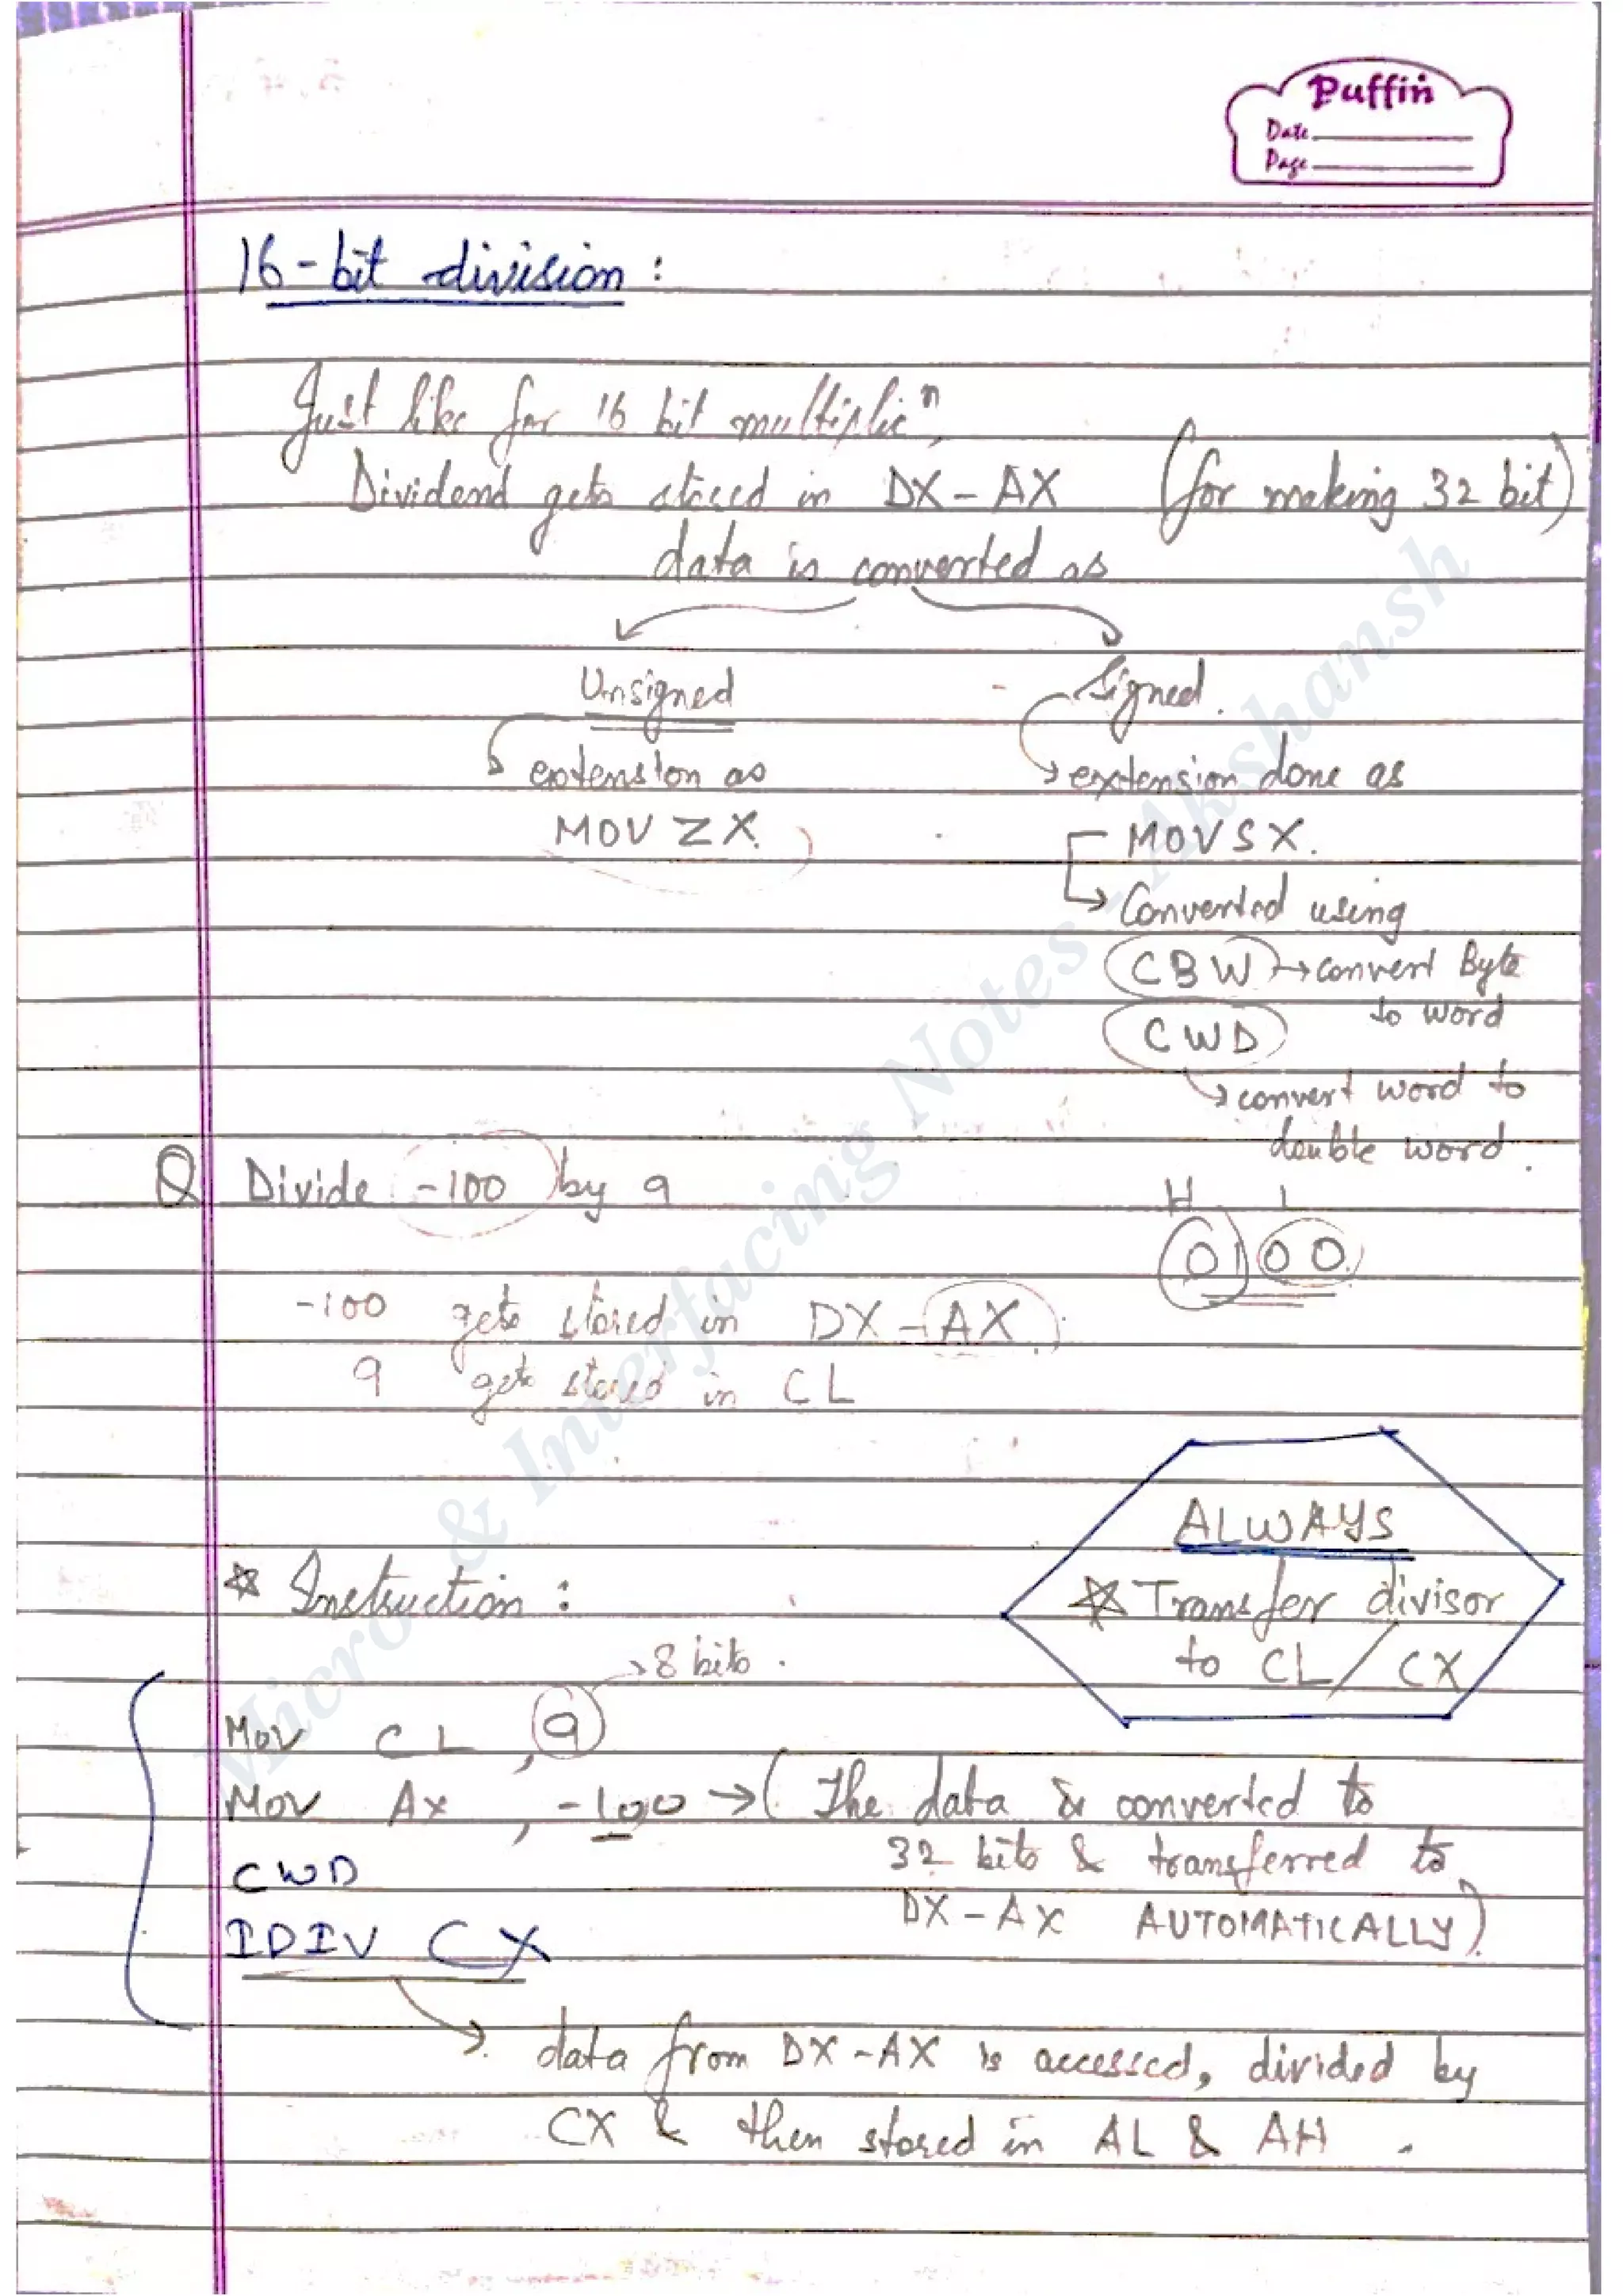 Puffin
Date
Page
16-bit division :
Just like for 16 bit multiplicⁿ,
Dividend gets stored in DX - AX (for making 32 bit)
data is converted as
Unsigned Signed.
extension as extension done as
MOV ZX. MOVSX.
Converted using
CBW → convert Byte
to word
CWD
convert word to
double word.
Q Divide -100 by 9
H L
01 00
-100 gets stored in DX - AX.
9 gets stored in CL
ALWAYS
☆ Transfer divisor
to CL / CX
☆ Instruction :
→ 8 bits.
Mov CL , 9
Mov Ax , -100 → ( The data is converted to
32 bits & transferred to
DX - AX AUTOMATICALLY)
CWD
IDIV CX
data from DX - AX is accessed, divided by
CX & then stored in AL & AH .
Micro & Interfacing Notes - Akshansh